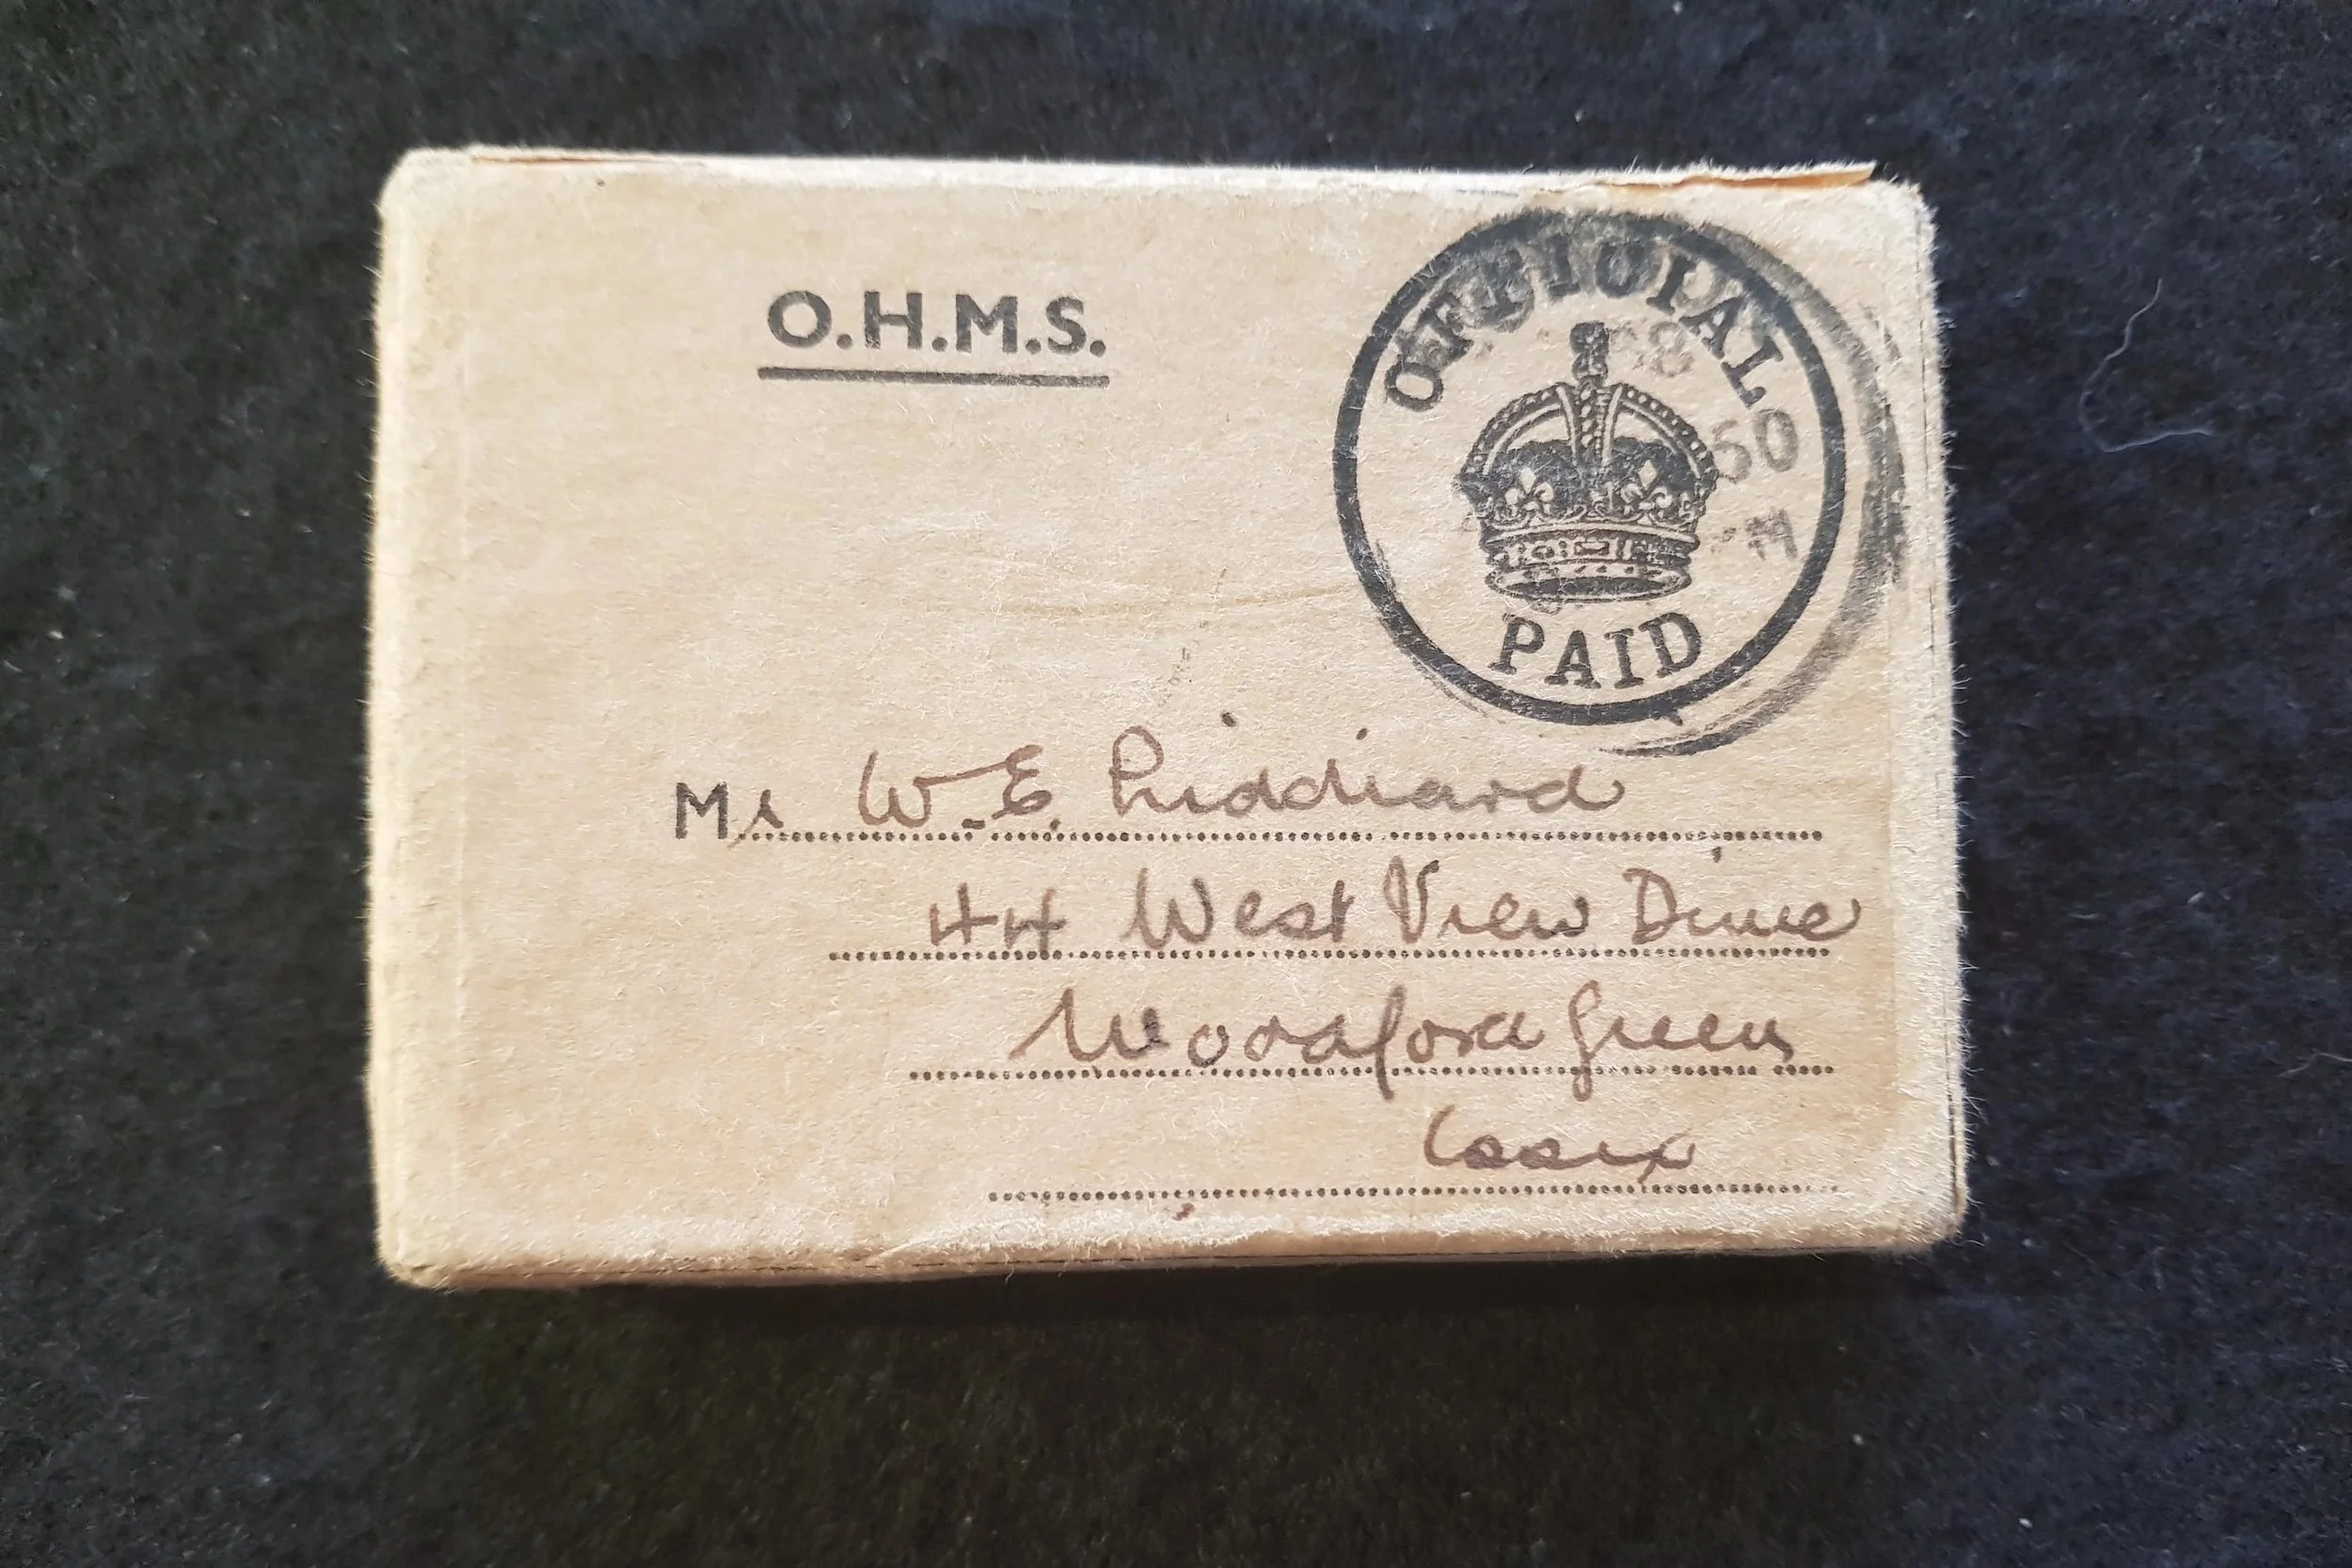 O.H.M.S.
OFFICIAL
50
PAID
Mr W.E. Liddiard
44 West View Drive
Woodford Green
Essex